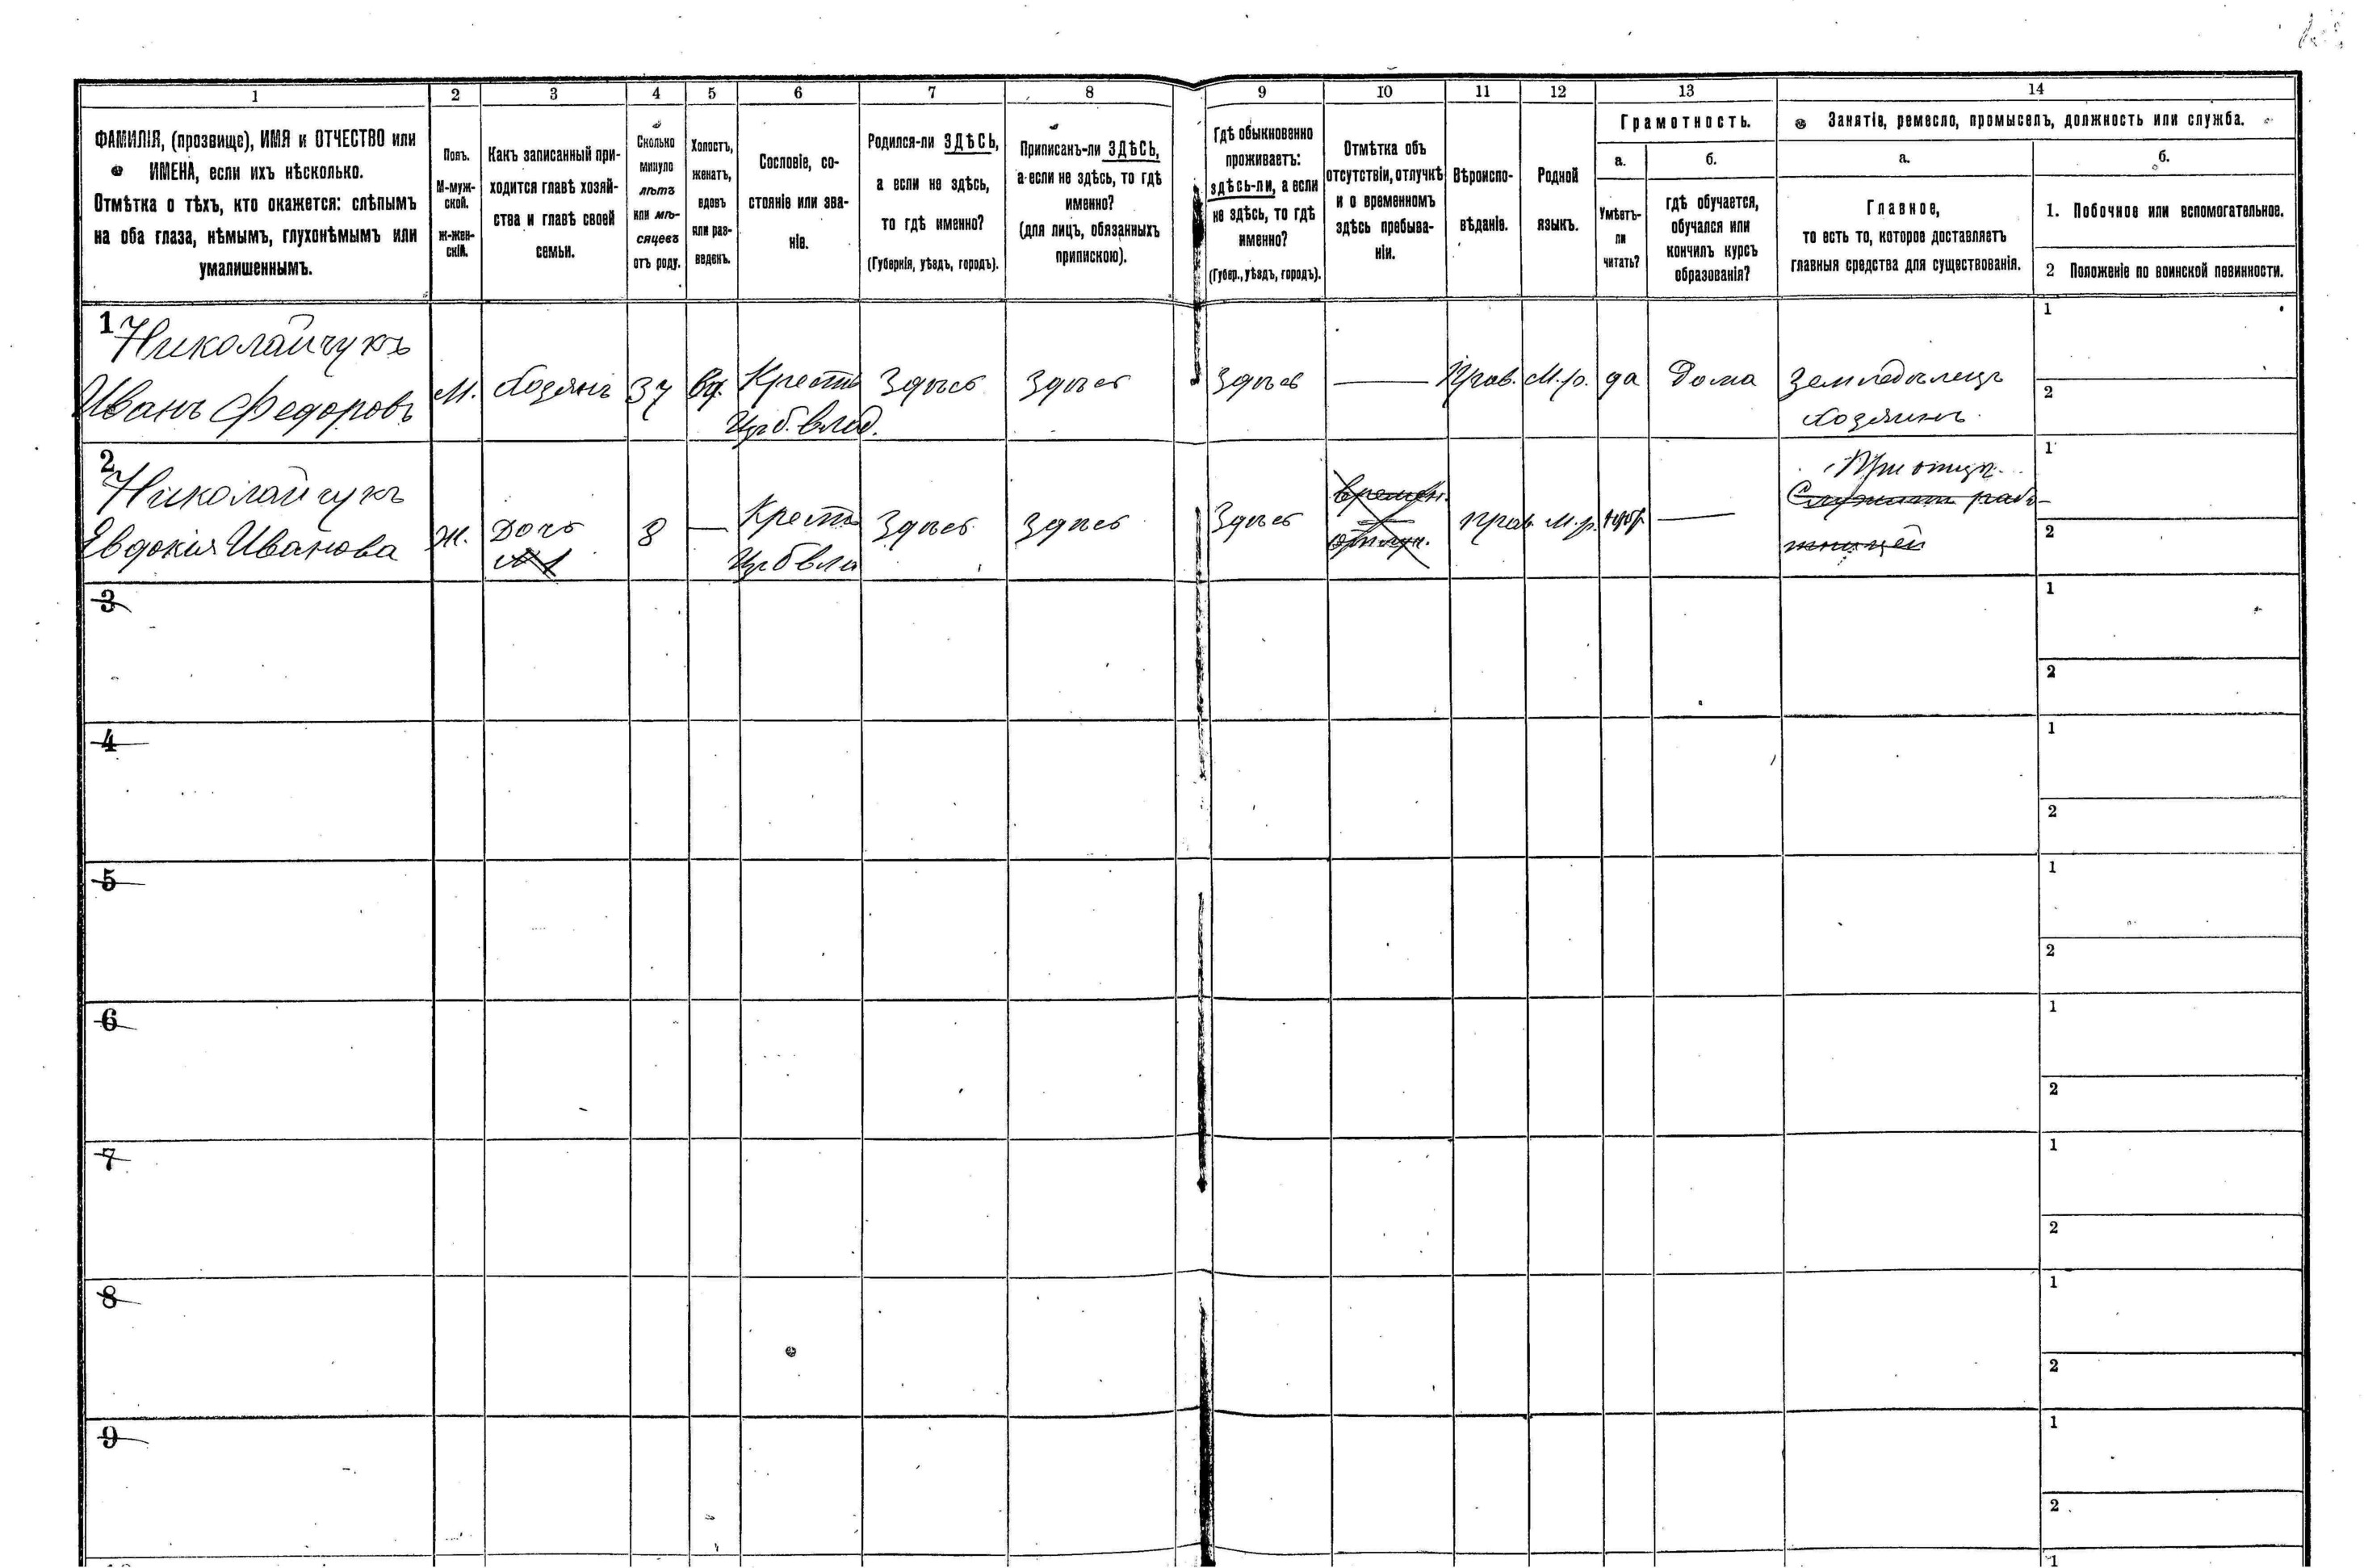 1
2
3
4
5
6
7
8
9
10
11
12
13
14
ФАМИЛІЯ, (прозвище), ИМЯ и ОТЧЕСТВО или
ИМЕНА, если ихъ нѣсколько.
Отмѣтка о тѣхъ, кто окажется: слѣпымъ
на оба глаза, нѣмымъ, глухонѣмымъ или
умалишеннымъ.
Полъ.
М-муж-
ской.
Ж-жен-
скій.
Какъ записанный при-
ходится главѣ хозяй-
ства и главѣ своей
семьи.
Сколько
минуло
лѣтъ
или мѣ-
сяцевъ
отъ роду.
Холостъ,
женатъ,
вдовъ
или раз-
веденъ.
Сословіе, со-
стояніе или зва-
ніе.
Родился-ли ЗДѢСЬ,
а если не здѣсь,
то гдѣ именно?
(Губернія, уѣздъ, городъ).
Приписанъ-ли ЗДѢСЬ,
а если не здѣсь, то гдѣ
именно?
(для лицъ, обязанныхъ
припискою).
Гдѣ обыкновенно
проживаетъ:
здѣсь-ли, а если
не здѣсь, то гдѣ
именно?
(Губер., уѣздъ, городъ).
Отмѣтка объ
отсутствіи, отлучкѣ
и о временномъ
здѣсь пребыва-
ніи.
Вѣроиспо-
вѣданіе.
Родной
языкъ.
Грамотность.
а.
Умѣетъ-
ли
читать?
б.
гдѣ обучается,
обучался или
кончилъ курсъ
образованія?
Занятіе, ремесло, промыселъ, должность или служба.
а.
Главное,
то есть то, которое доставляетъ
главныя средства для существованія.
б.
1. Побочное или вспомогательное.
2 Положеніе по воинской повинности.
1
Николайчукъ
Иванъ Федоровъ
М.
Хозяинъ
37
Вд.
Крестъ
Здѣсь
Здѣсь
Здѣсь
Прав.
М.р.
да
Дома
Земледѣлецъ
Хозяинъ
1
2
2
Николайчукъ
Евдокія Иванова
Ж.
Дочь
8
Крестъ
Здѣсь
Здѣсь
Здѣсь
времен.
отлуч.
Прав
М.р.
При отцѣ
1
2
3
1
2
4
1
2
5
1
2
6
1
2
7
1
2
8
1
2
9
1
2
1